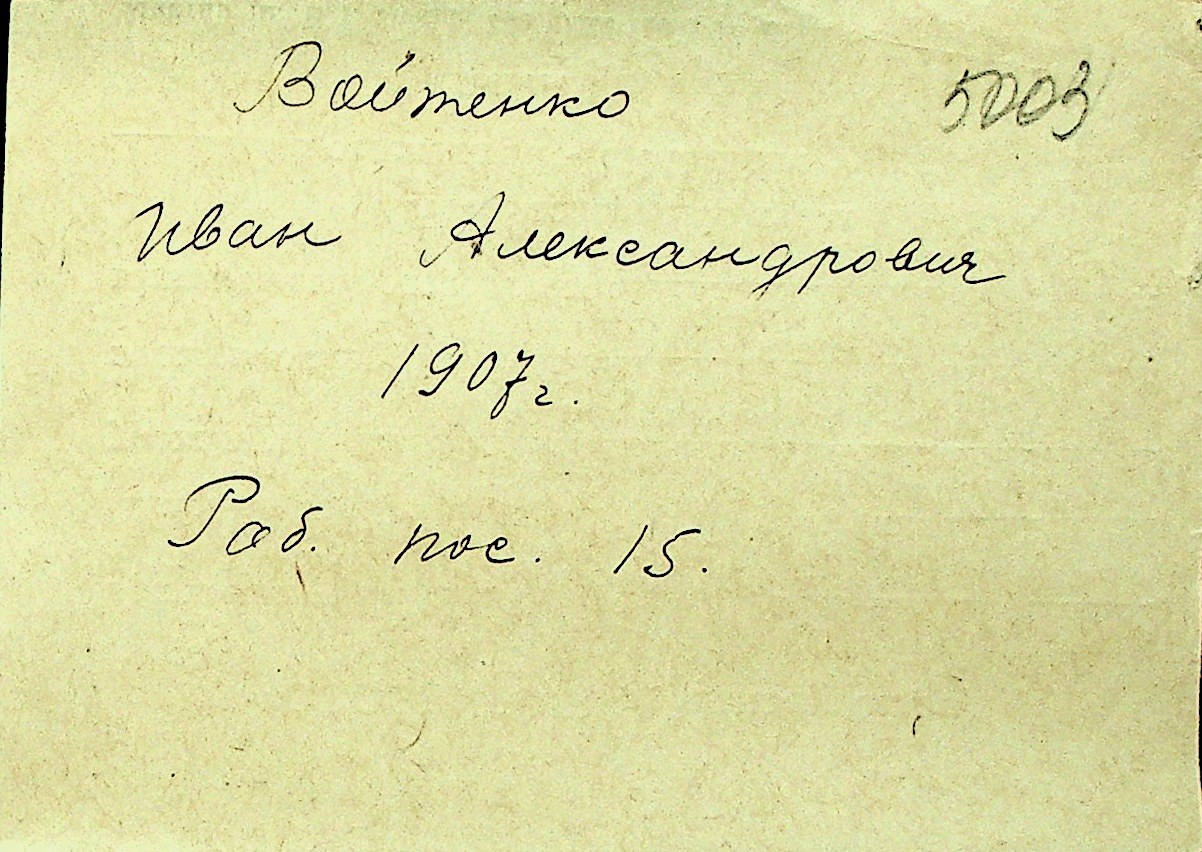 Войтенко 5003
Иван Александрович
1907г.
Раб. пос. 15.